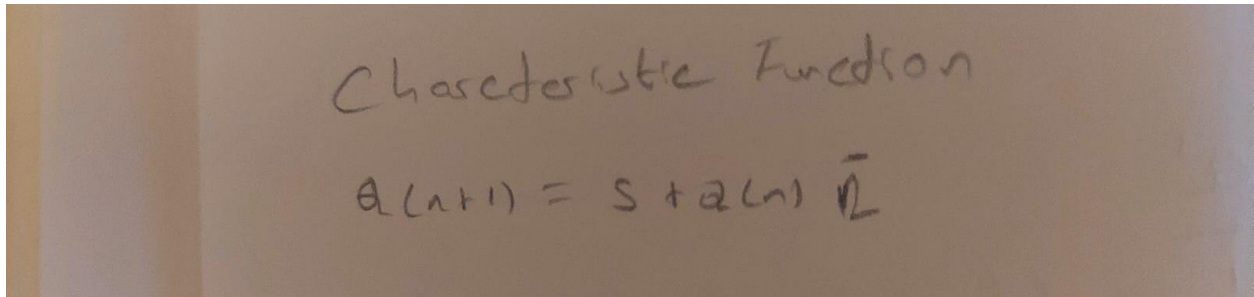 Charcteristic Function
Q(n+1) = S + Q(n) R̄